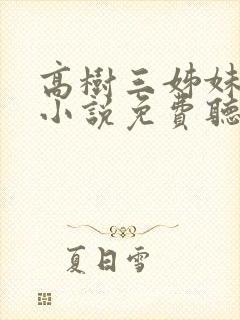 高樹三姊妹
小說免費聽
夏日雪